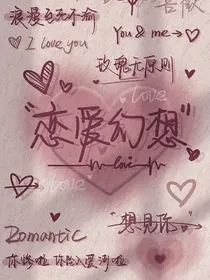 浪漫至死不渝
I love you
You & me→
玫瑰无原则
Love
"恋爱幻想"
love
Love
"想见你。"
Romantic
你终啦 你坠入爱河啦